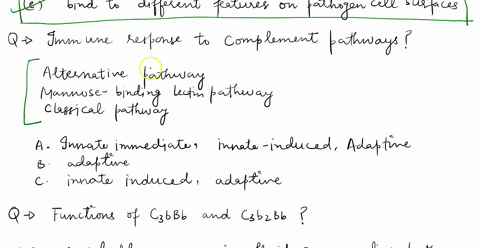 bind to different features on pathogen cell surfaces
Q → Immune response to Complement pathways?
Alternative pathway
Mannose-binding lectin pathway
Classical pathway
A. Innate immediate, innate-induced, Adaptive
B. adaptive
C. innate induced, adaptive
Q → Functions of C3bBb and C3b2Bb ?